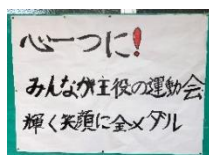 心一つに!
みんなが主役の運動会
輝く笑顔に金メダル